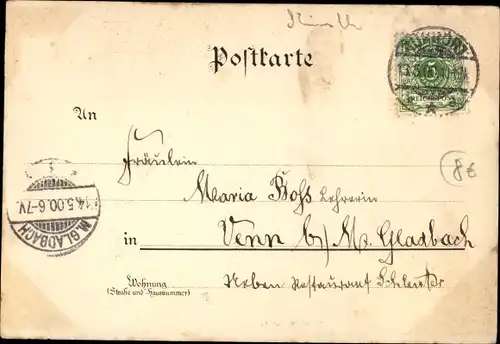 Postkarte
8€
An
Fräulein
Maria Bohs Lehrerin
in Venn b/ M. Gladbach
Wohnung
(Straße und Hausnummer)
Neben Restaurant
14.5.00.6-7V.
M. GLADBACH